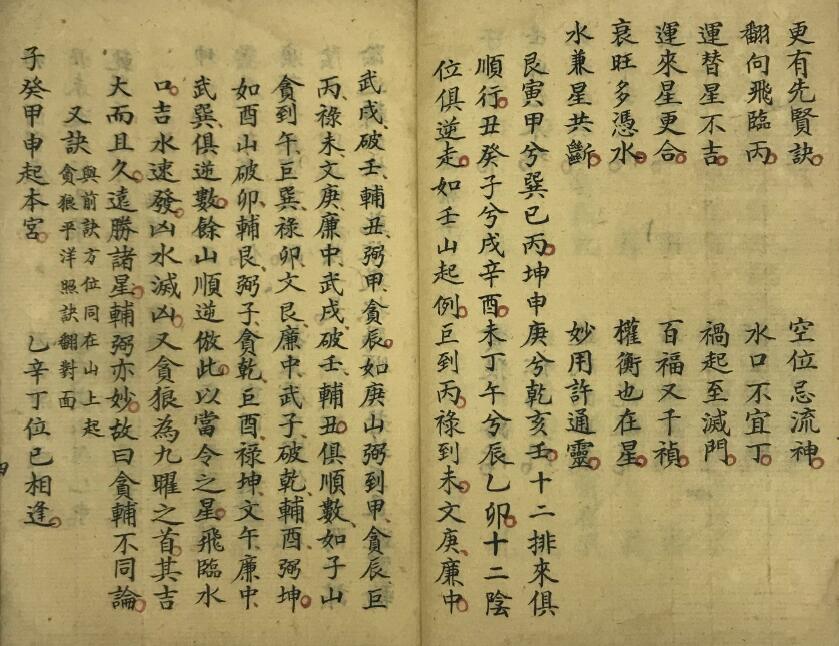 更有先賢訣 空位忌流神
翻向飛臨丙 水口不宜丁
運替星不吉 禍起至滅門
運來星更合 百福又千禎
衰旺多憑水 權衡也在星
水兼星共斷 妙用許通靈
艮寅甲兮巽巳丙坤申庚兮乾亥壬十二排來俱
順行丑癸子兮戌辛酉未丁午兮辰乙卯十二陰
位俱逆走如壬山起例巨到丙祿到未文庚廉中
武戌破壬輔丑弼甲貪辰如庚山弼到甲貪辰巨
丙祿未文庚廉中武戌破壬輔丑俱順數如子山
貪到午巨巽祿卯文艮廉中武子破乾輔酉弼坤
如酉山破卯輔艮弼子貪乾巨酉祿坤文午廉中
武巽俱逆數餘山順逆倣此以當令之星飛臨水
口吉水速發凶水滅凶又貪狼為九曜之首其吉
大而且久遠勝諸星輔弼亦妙故曰貪輔不同論
又訣 與前訣方位同在山上起
貪狼平洋照訣翻對面
子癸甲申起本宮 乙辛丁位巳相逢